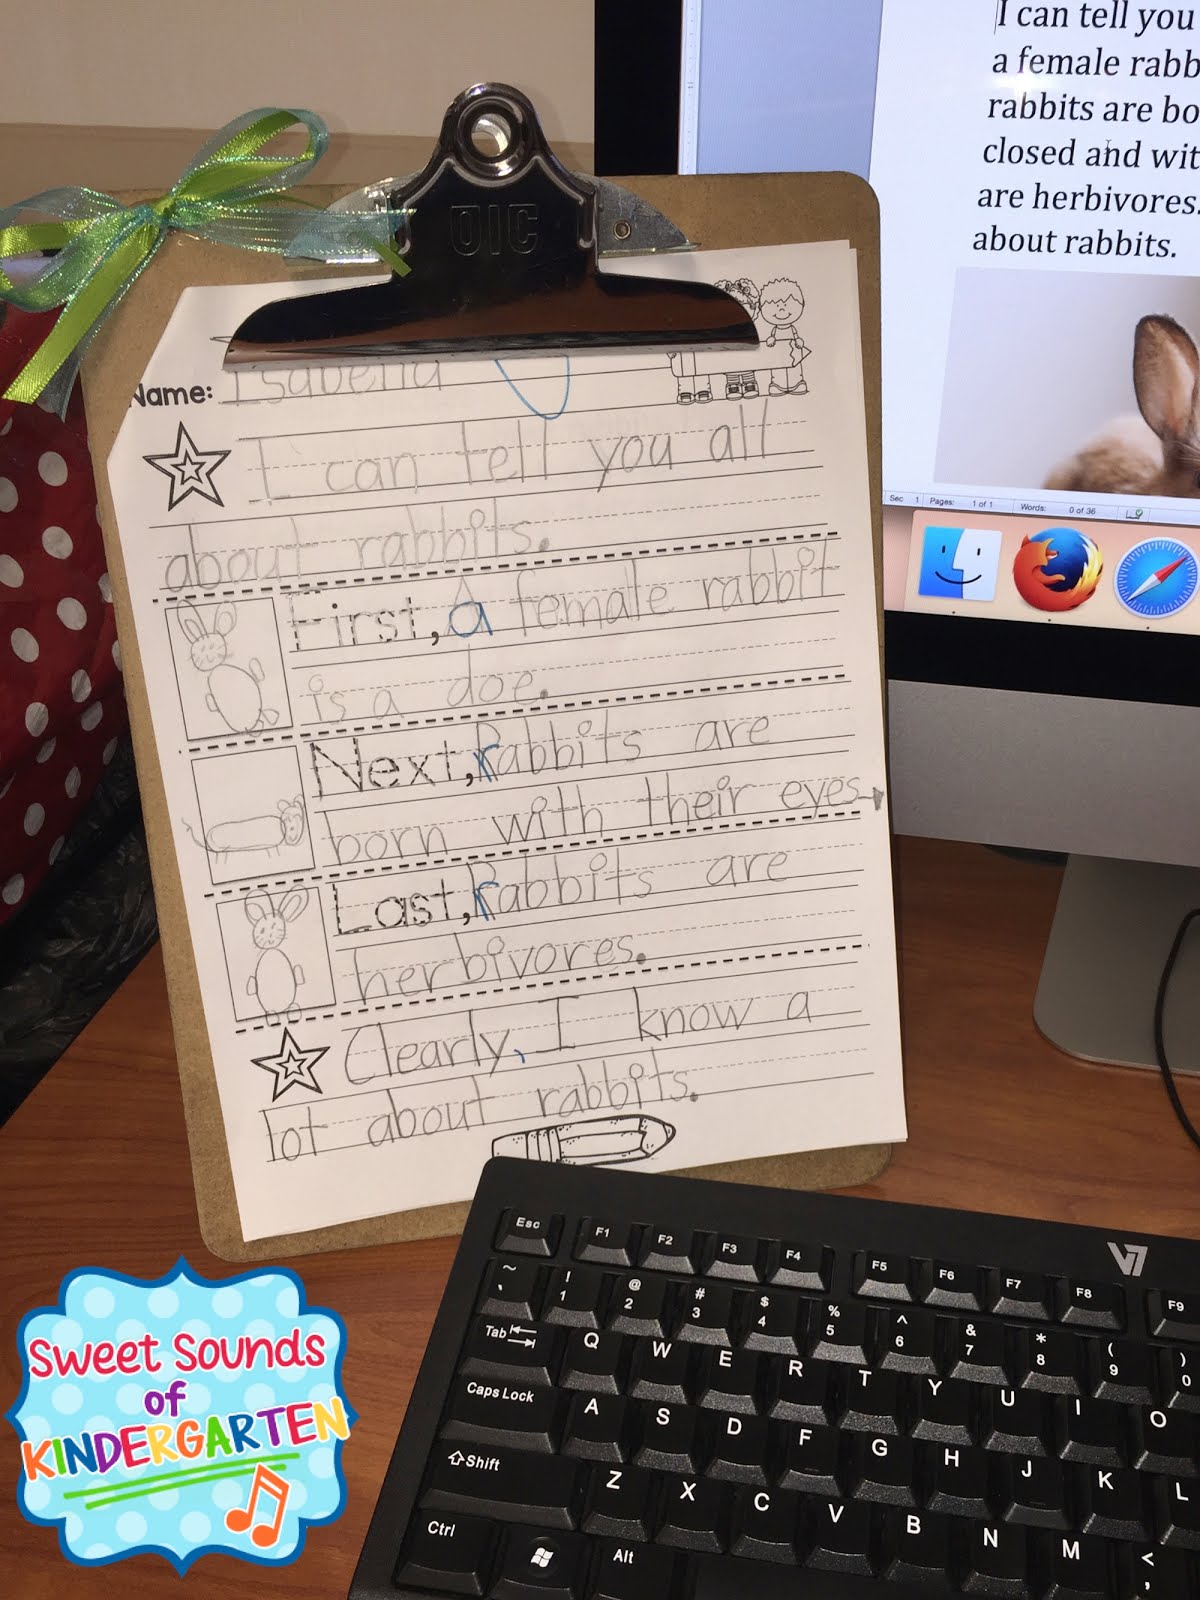 OIC
Name: Isabella
I can tell you all
about rabbits.
First, a female rabbit
is a doe.
Next, rabbits are
born with their eyes
Last, rabbits are
herbivores.
Clearly, I know a
lot about rabbits.
I can tell you
a female rabb
rabbits are bo
closed and wit
are herbivores.
about rabbits.
Sec 1 Pages: 1 of 1 Words: 0 of 36
Sweet Sounds
of
KINDERGARTEN
V7
Esc F1 F2 F3 F4 F5 F6 F7 F8 F9
~ ` ! 1 @ 2 # 3 $ 4 % 5 ^ 6 & 7 * 8 ( 9 ) 0
Tab Q W E R T Y U I O
Caps Lock A S D F G H J K L
Shift Z X C V B N M < ,
Ctrl Alt